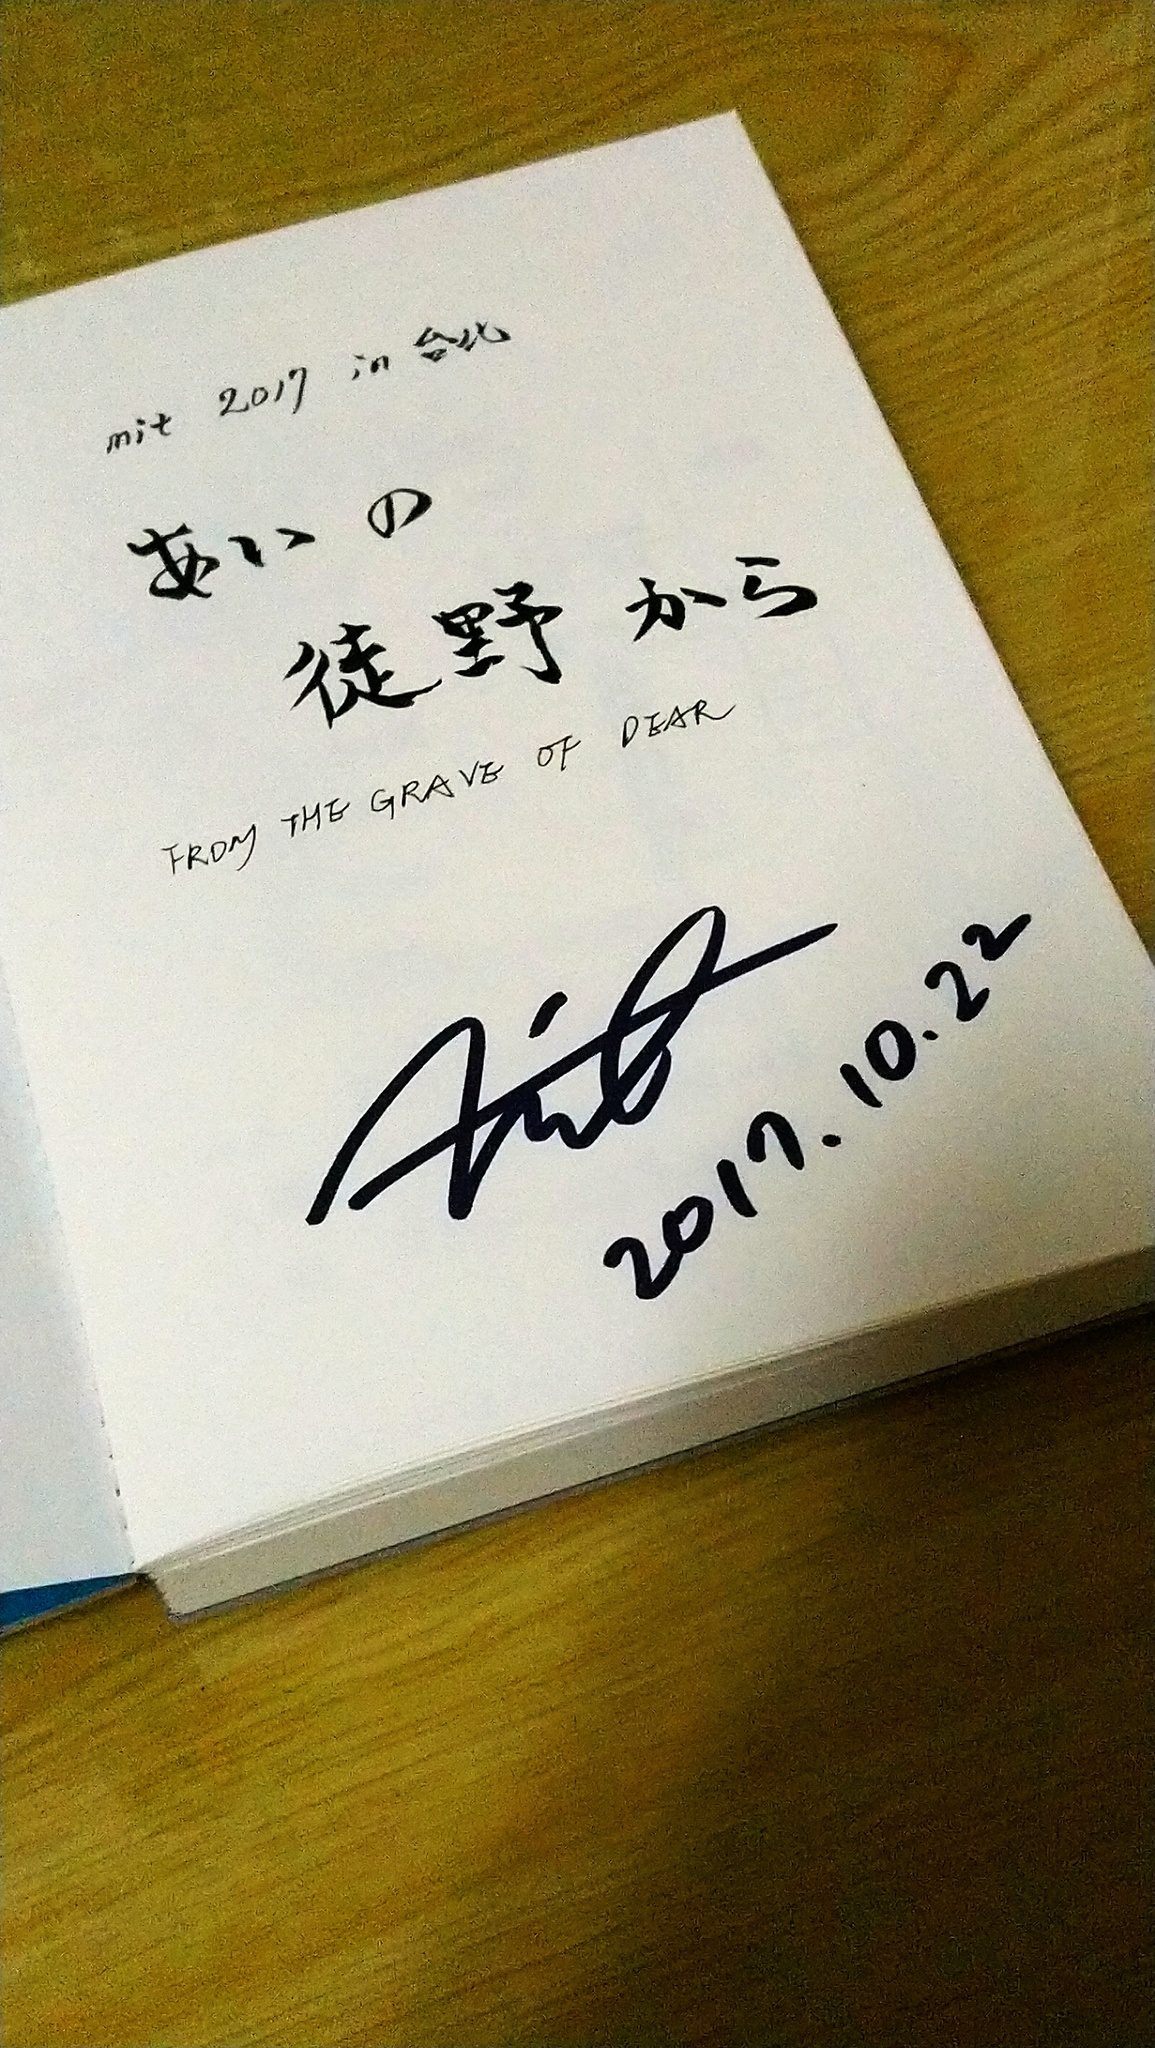 mit 2017 in 台北
あいの
徒野から
FROM THE GRAVE OF DEAR
2017.10.22